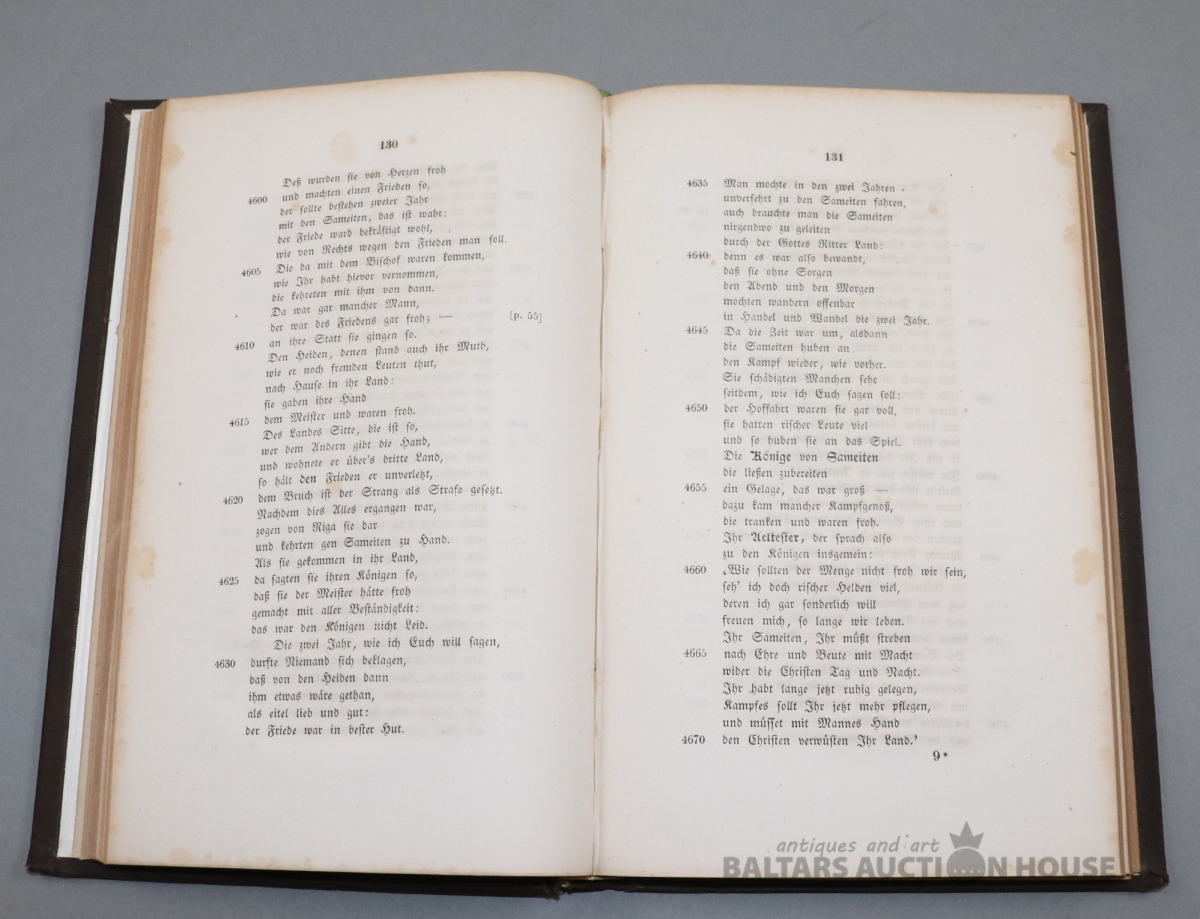 130
Deß wurden sie von Herzen froh
4600 und machten einen Frieden so,
der sollte bestehen zweier Jahr
mit den Sameiten, das ist wahr:
der Friede ward bekräftigt wohl,
wie von Rechts wegen den Frieden man soll.
4605 Die da mit dem Bischof waren kommen,
wie Ihr habt hievor vernommen,
die kehreten mit ihm von dann.
Da war gar mancher Mann,
der war des Friedens gar froh; — [p. 55]
4610 an ihre Statt sie gingen so.
Den Heiden, denen stand auch ihr Muth,
wie er noch fremden Leuten thut,
nach Hause in ihr Land:
sie gaben ihre Hand
4615 dem Meister und waren froh.
Des Landes Sitte, die ist so,
wer dem Andern gibt die Hand,
und wohnete er über's dritte Land,
so hält den Frieden er unverletzt,
4620 dem Bruch ist der Strang als Strafe gesetzt.
Nachdem dies Alles ergangen war,
zogen von Riga sie dar
und kehrten gen Sameiten zu Hand.
Als sie gekommen in ihr Land,
4625 da sagten sie ihren Königen so,
daß sie der Meister hätte froh
gemacht mit aller Beständigkeit:
das war den Königen nicht Leid.
Die zwei Jahr, wie ich Euch will sagen,
4630 durfte Niemand sich beklagen,
daß von den Heiden dann
ihm etwas wäre gethan,
als eitel lieb und gut:
der Friede war in bester Hut.
131
4635 Man mochte in den zwei Jahren
unversehrt zu den Sameiten fahren,
auch brauchte man die Sameiten
nirgendwo zu geleiten
durch der Gottes Ritter Land:
4640 denn es war also bewandt,
daß sie ohne Sorgen
den Abend und den Morgen
mochten wandern offenbar
in Handel und Wandel die zwei Jahr.
4645 Da die Zeit war um, alsdann
die Sameiten huben an
den Kampf wieder, wie vorher.
Sie schädigten Manchen sehr
seitdem, wie ich Euch sagen soll:
4650 der Hoffahrt waren sie gar voll,
sie hatten rischer Leute viel
und so huben sie an das Spiel.
Die Könige von Sameiten
die ließen zubereiten
4655 ein Gelage, das war groß —
dazu kam mancher Kampfgenoß,
die tranken und waren froh.
Ihr Aeltester, der sprach also
zu den Königen insgemein:
4660 ‚Wie sollten der Menge nicht froh wir sein,
seh' ich doch rischer Helden viel,
deren ich gar sonderlich will
freuen mich, so lange wir leben.
Ihr Sameiten, Ihr müßt streben
4665 nach Ehre und Beute mit Macht
wider die Christen Tag und Nacht.
Ihr habt lange jetzt ruhig gelegen,
Kampfes sollt Ihr jetzt mehr pflegen,
und müsset mit Mannes Hand
4670 den Christen verwüsten Ihr Land.'
9*
antiques and art
BALTARS AUCTION HOUSE